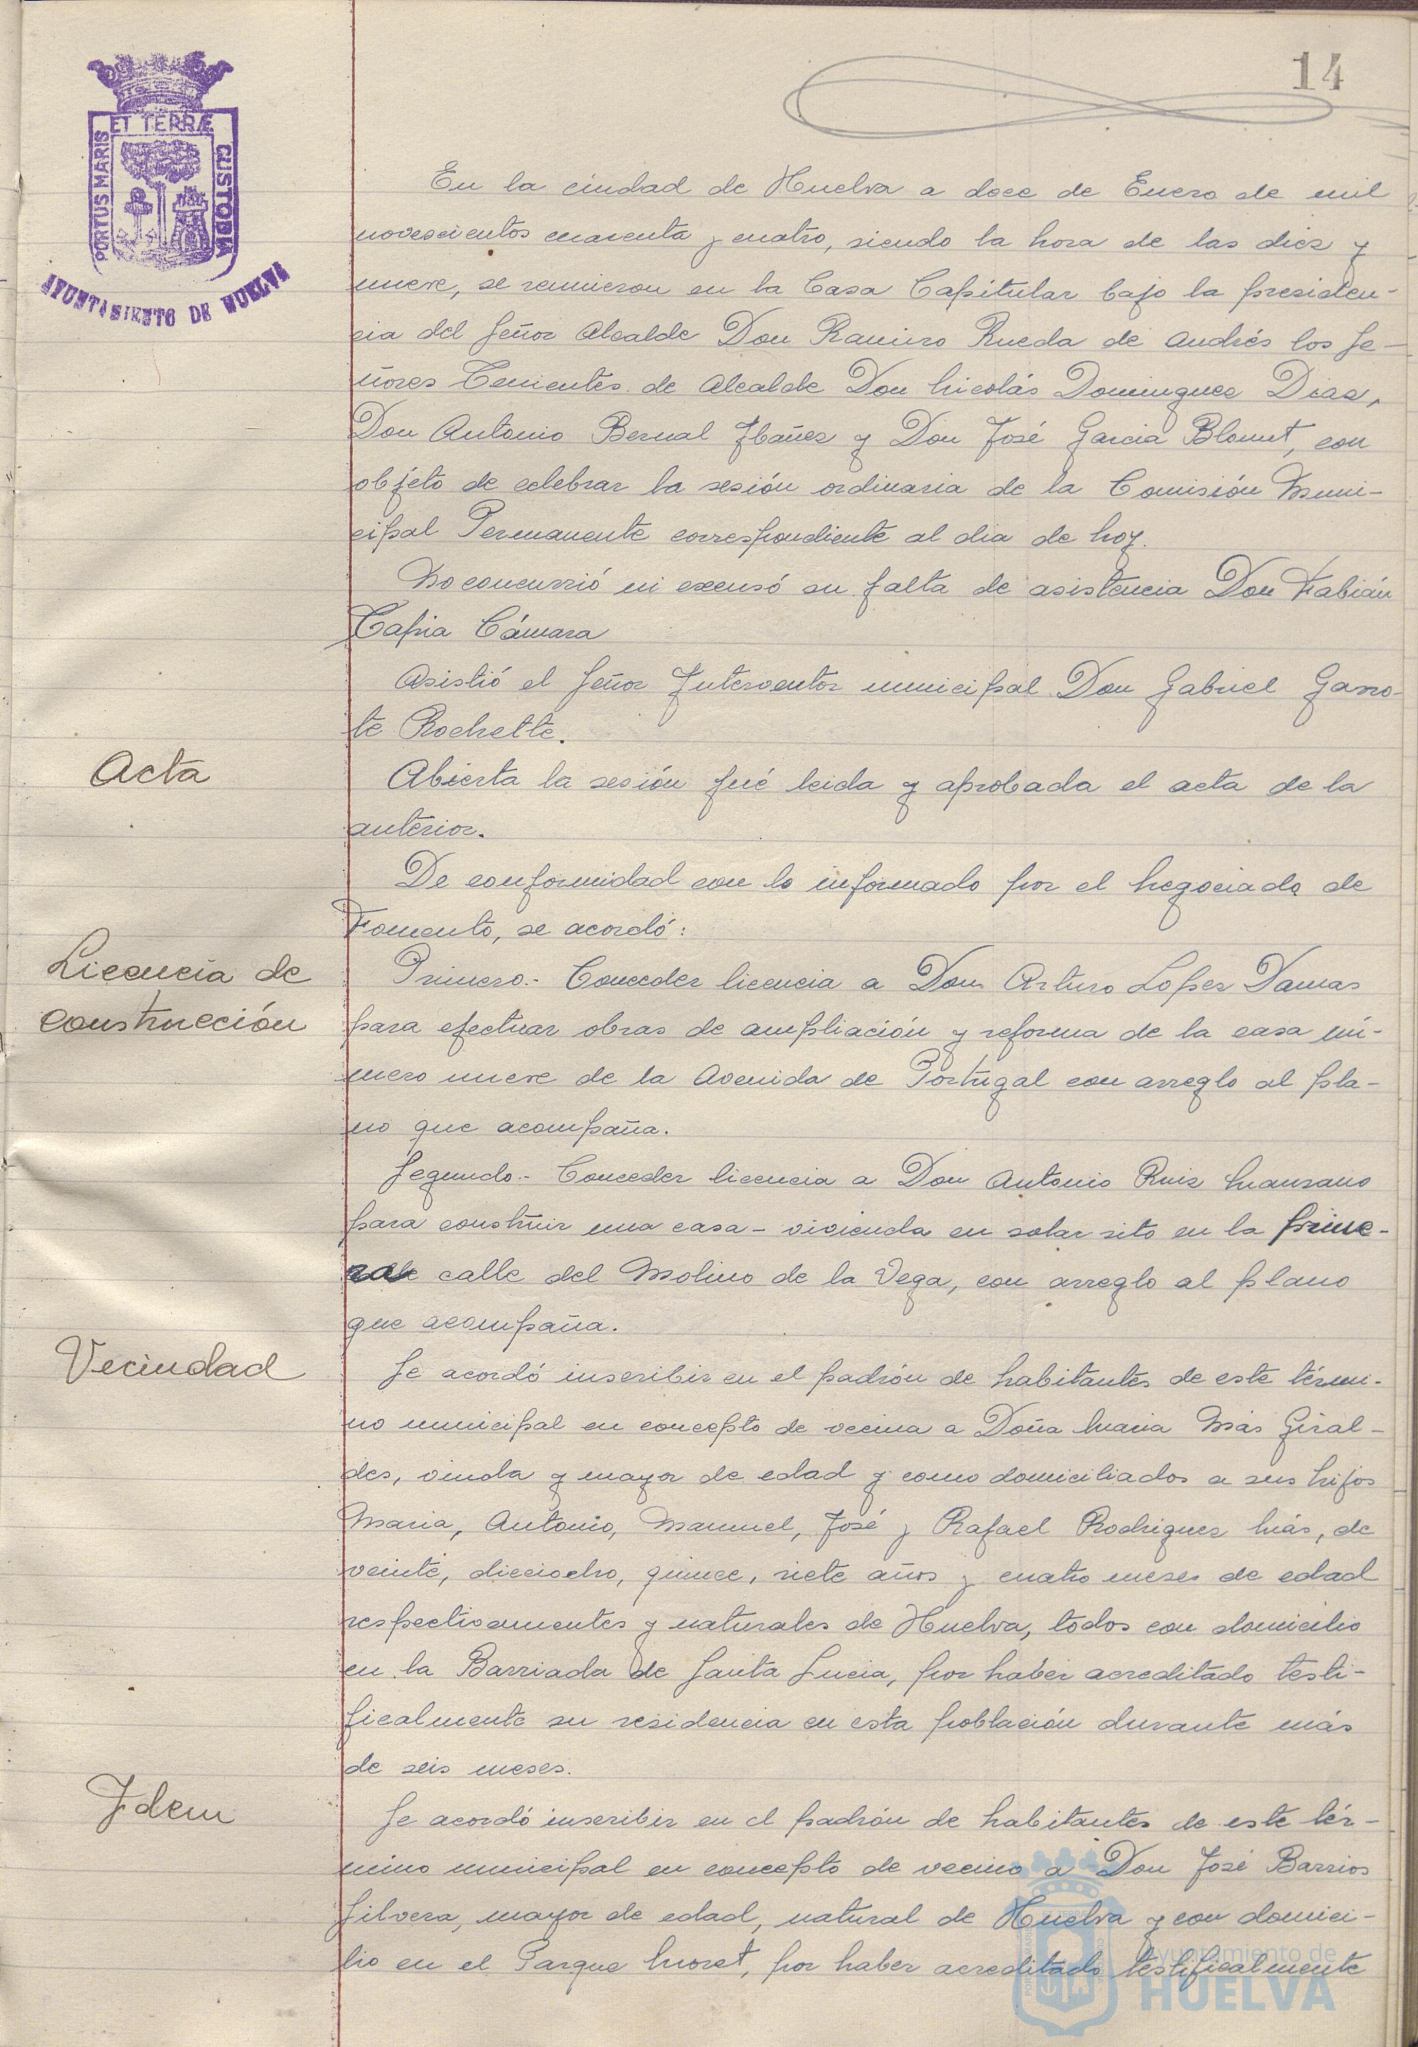 14
PORTUS MARIS
ET TERRÆ
CUSTODIA
AYUNTAMIENTO DE HUELVA
En la ciudad de Huelva a doce de Enero de mil
novescientos cuarenta y cuatro, siendo la hora de las diez y
nueve, se reunieron en la Casa Capitular bajo la presiden-
cia del Señor Alcalde Don Ramiro Rueda de Andrés los Se-
ñores Tenientes de Alcalde Don Nicolás Dominguez Diaz,
Don Antonio Bernal Ibañez y Don José Garcia Blonut, con
objeto de celebrar la sesión ordinaria de la Comisión Muni-
cipal Permanente correspondiente al dia de hoy.
No concurrió ni excusó su falta de asistencia Don Fabián
Tapia Cámara
Asistió el Señor Interventor municipal Don Gabriel Garro-
te Rochette.
Acta
Abierta la sesión fué leida y aprobada el acta de la
anterior.
De conformidad con lo informado por el Negociado de
Fomento, se acordó:
Licencia de
construcción
Primero.- Conceder licencia a Don Arturo Lopez Damas
para efectuar obras de ampliación y reforma de la casa nú-
mero nueve de la Avenida de Portugal con arreglo al pla-
no que acompaña.
Segundo.- Conceder licencia a Don Antonio Ruiz Manzano
para construir una casa-vivienda en solar sito en la prime-
ra calle del Molino de la Vega, con arreglo al plano
que acompaña.
Vecindad
Se acordó inscribir en el padrón de habitantes de este térmi-
no municipal en concepto de vecina a Doña Maria Mas Giral-
des, viuda y mayor de edad y como domiciliados a sus hijos
Maria, Antonio, Manuel, José y Rafael Rodriguez Más, de
veinte, dieciocho, quince, siete años y cuatro meses de edad
respectivamentes y naturales de Huelva, todos con domicilio
en la Barriada de Santa Lucia, por haber acreditado testi-
ficalmente su residencia en esta población durante más
de seis meses.
Idem
Se acordó inscribir en el padrón de habitantes de este tér-
mino municipal en concepto de vecino a Don José Barrios
Silvera, mayor de edad, natural de Huelva y con domici-
lio en el Parque Moret, por haber acreditado testificalmente
Ayuntamiento de
HUELVA